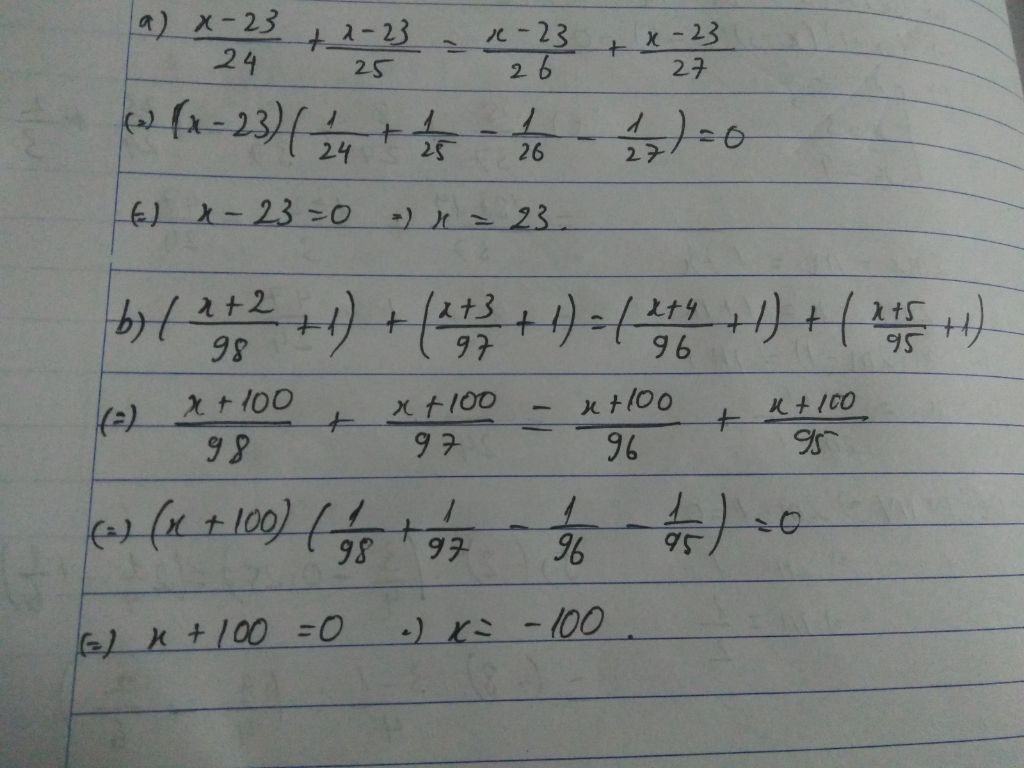 a) x-23/24 + x-23/25 = x-23/26 + x-23/27
(=) (x-23)(1/24 + 1/25 - 1/26 - 1/27) = 0
(=) x-23=0 =) x = 23.
b) (x+2/98 + 1) + (x+3/97 + 1) = (x+4/96 + 1) + (x+5/95 + 1)
(=) x+100/98 + x+100/97 = x+100/96 + x+100/95
(=) (x+100)(1/98 + 1/97 - 1/96 - 1/95) = 0
(=) x+100 = 0 =) x = -100.